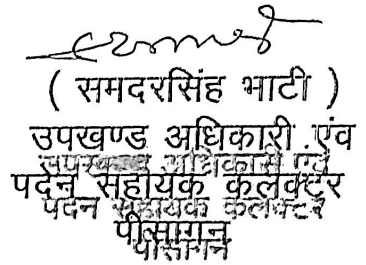 ( समदरसिंह भाटी )
उपखण्ड अधिकारी एंव
उपखण्ड अधिकारी एवं
पदेन सहायक कलक्टर
पदेन सहायक कलक्टर
पीसागन
पीसागन